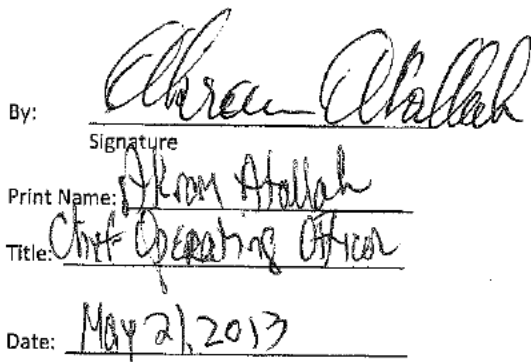 By: Akram Atallah
Signature
Print Name: Akram Atallah
Title: Chief Operating Officer
Date: May 21, 2013